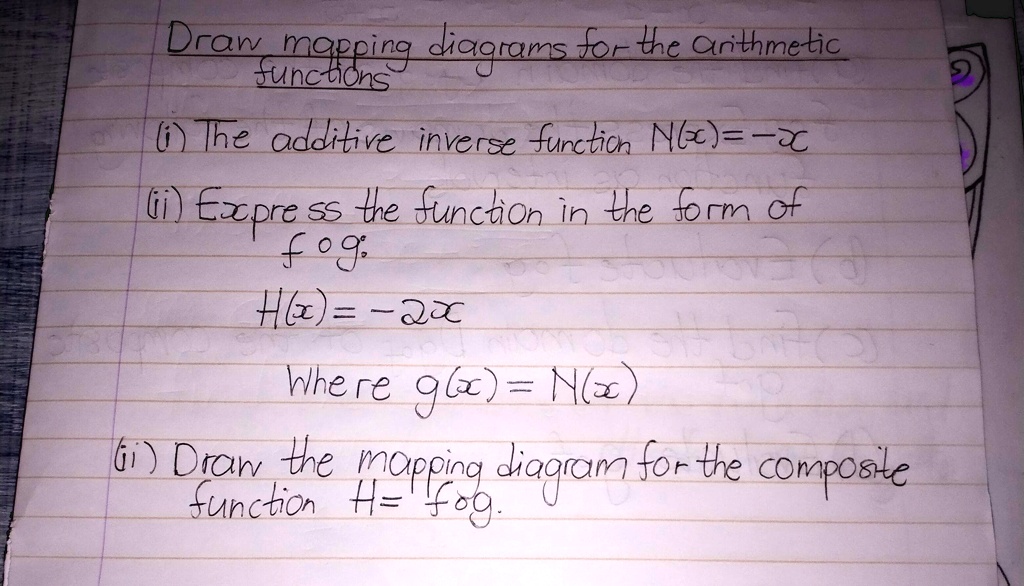 Draw mapping diagrams for the arithmetic
functions
(i) The additive inverse function N(x)= -x
(ii) Express the function in the form of
fog:
H(x) = -2x
Where g(x) = N(x)
(ii) Draw the mapping diagram for the composite
function H= fog.